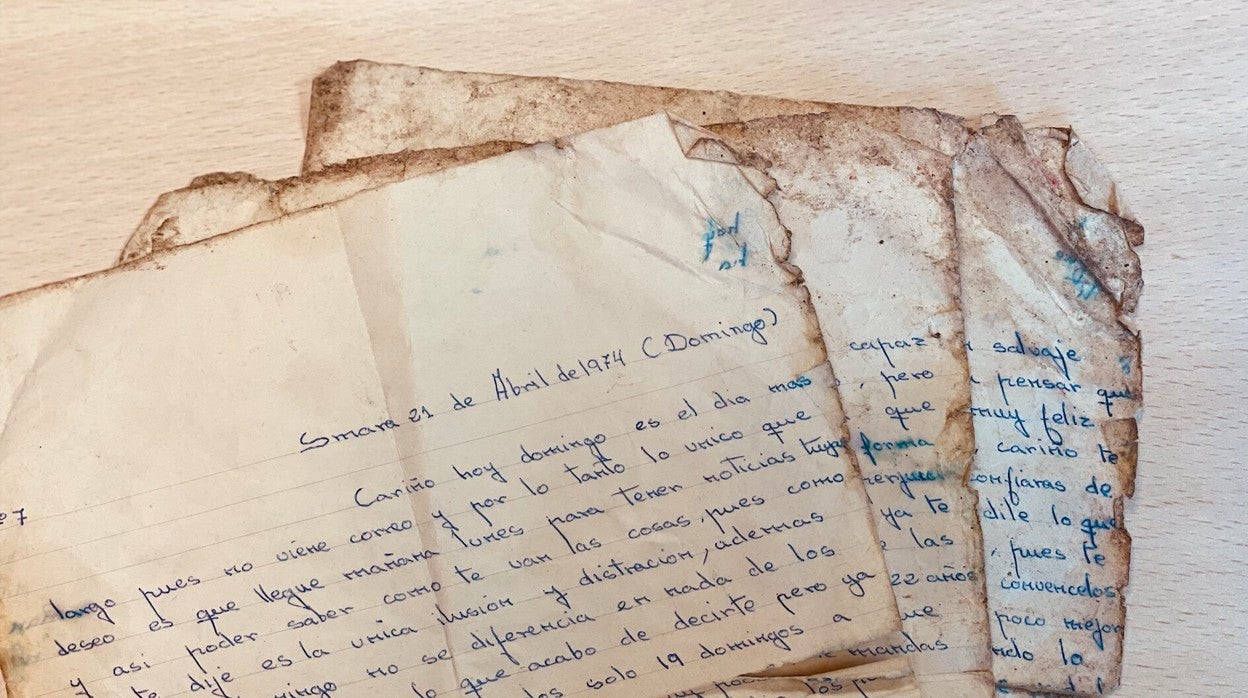 Smara 21 de Abril de 1974 (Domingo)
Cariño hoy domingo es el dia mas
largo pues no viene correo y por lo tanto lo unico que
deseo es que llegue mañana lunes para tener noticias tuyas
y asi poder saber como te van las cosas, pues como
te dije es la unica ilusión y distración, ademas
no se diferencia en nada de los
lo que acabo de decirte pero ya
solo 19 domingos a
7
hoy
capaz
, pero
que
forma
ya te
las
22 años
que
mandas
salvaje
pensar que
muy feliz
, cariño te
confiaras de
dile lo que
, pues te
convencelos
poco mejor
la